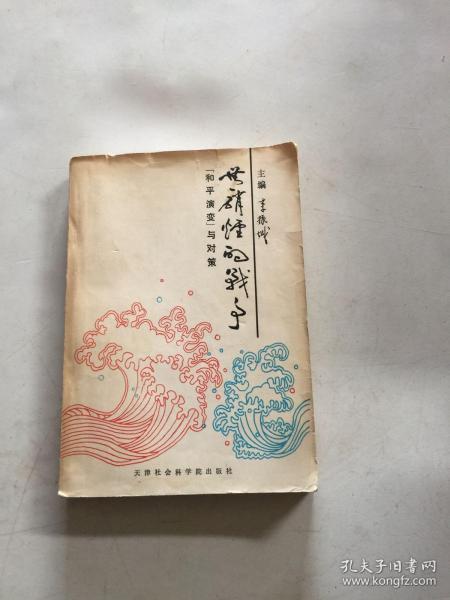 主编 李振城
無硝烟的战争
「和平演变」与对策
天津社会科学院出版社
孔夫子旧书网
www.kongfz.com